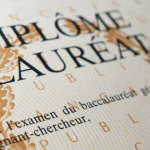 DIPLÔME
LAURÉAT
l'examen du baccalauréat gé
gnant-chercheur,